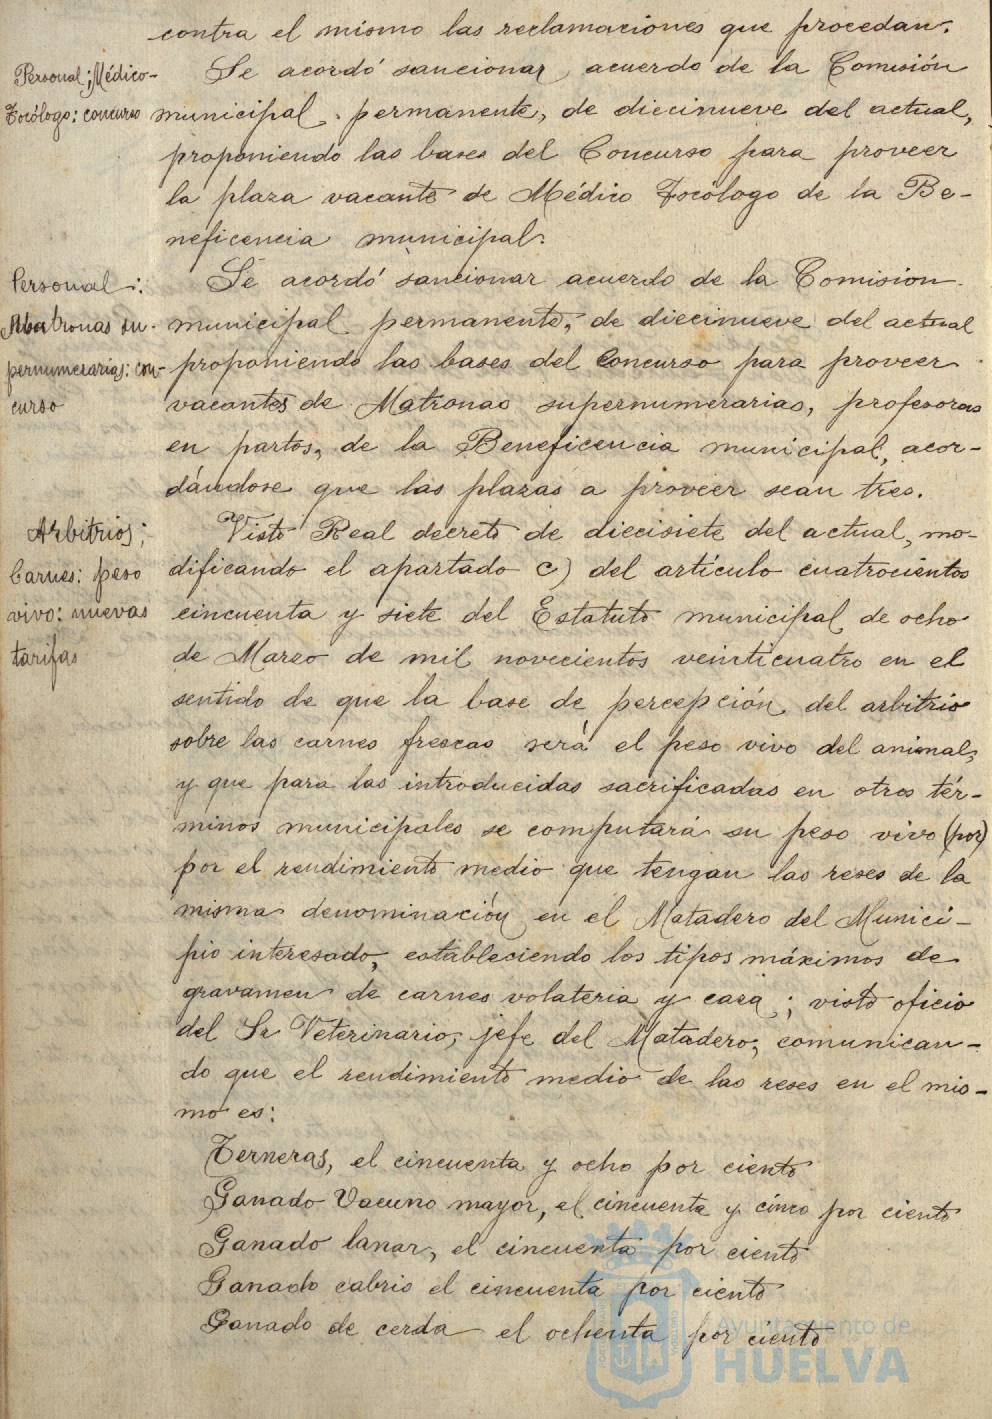 contra el mismo las reclamaciones que procedan.
Personal; Médico-
Tocólogo: concurso
Se acordó sancionar acuerdo de la Comisión
municipal permanente, de diecinueve del actual,
proponiendo las bases del Concurso para proveer
la plaza vacante de Médico Tocólogo de la Be-
neficencia municipal.
Personal:
Matronas su-
pernumerarias: con-
curso
Se acordó sancionar acuerdo de la Comisión
municipal permanente, de diecinueve del actual
proponiendo las bases del Concurso para proveer
vacantes de Matronas supernumerarias, profesoras
en partos, de la Beneficencia municipal, acor-
dándose que las plazas a proveer sean tres.
Arbitrios;
Carnes: peso
vivo: nuevas
tarifas
Visto Real decreto de diecisiete del actual, mo-
dificando el apartado c) del artículo cuatrocientos
cincuenta y siete del Estatuto municipal de ocho
de Marzo de mil novecientos veinticuatro en el
sentido de que la base de percepción del arbitrio
sobre las carnes frescas será el peso vivo del animal,
y que para las introducidas sacrificadas en otros tér-
minos municipales se computará su peso vivo (por)
por el rendimiento medio que tengan las reses de la
misma denominación en el Matadero del Munici-
pio interesado, estableciendo los tipos máximos de
gravamen de carnes volateria y caza; visto oficio
del Sr Veterinario, jefe del Matadero, comunican-
do que el rendimiento medio de las reses en el mis-
mo es:
Terneras, el cincuenta y ocho por ciento
Ganado Vacuno mayor, el cincuenta y cinco por ciento
Ganado lanar, el cincuenta por ciento
Ganado cabrio el cincuenta por ciento
Ganado de cerda el ochenta por ciento
Ayuntamiento de
HUELVA